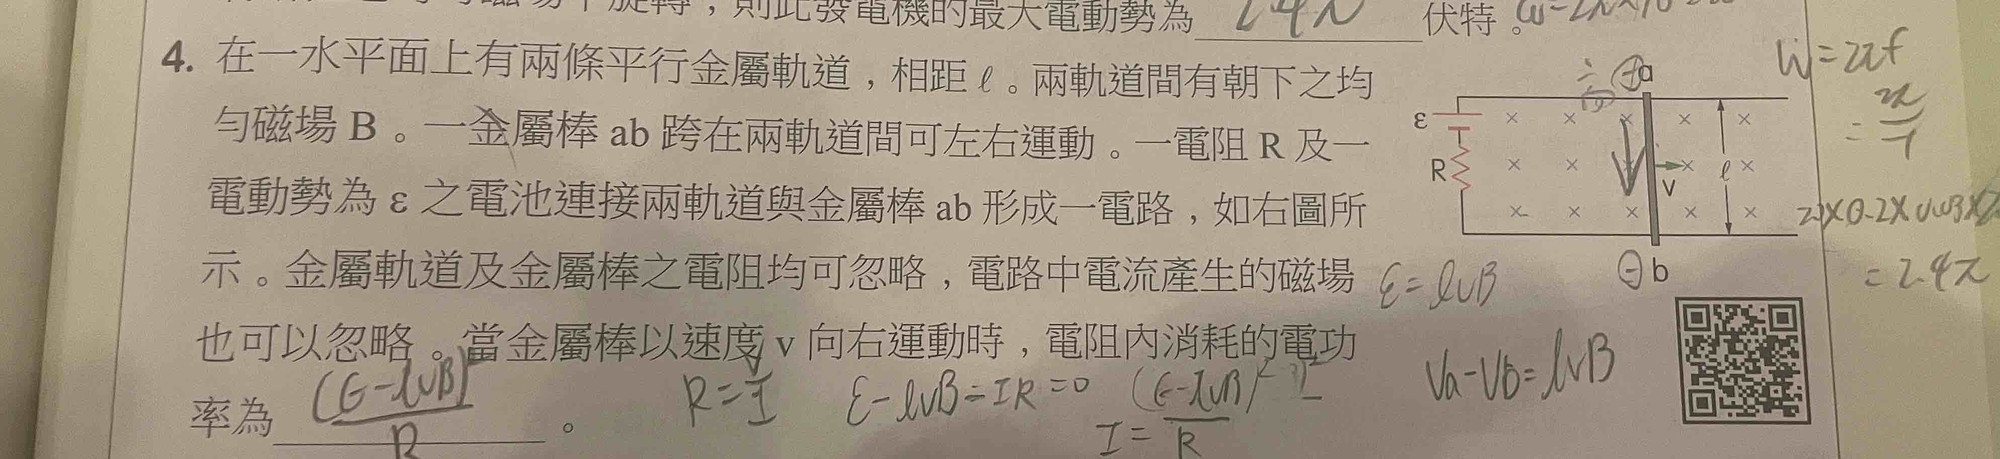 則此發電機的最大電動勢為 24π 伏特。
4. 在一水平面上有兩條平行金屬軌道，相距 ℓ。兩軌道間有朝下之均
勻磁場 B。一金屬棒 ab 跨在兩軌道間可左右運動。一電阻 R 及一
電動勢為 ε 之電池連接兩軌道與金屬棒 ab 形成一電路，如右圖所
示。金屬軌道及金屬棒之電阻均可忽略，電路中電流產生的磁場
也可以忽略。當金屬棒以速度 v 向右運動時，電阻內消耗的電功
率為 (ε-ℓvB)²/R。
R=V/I
ε-ℓvB-IR=0
I=(ε-ℓvB)/R
高 + a
ε
R
v
ℓ
- b
ε=ℓvB
Va-Vb=ℓvB
W=2πf
=2.4π